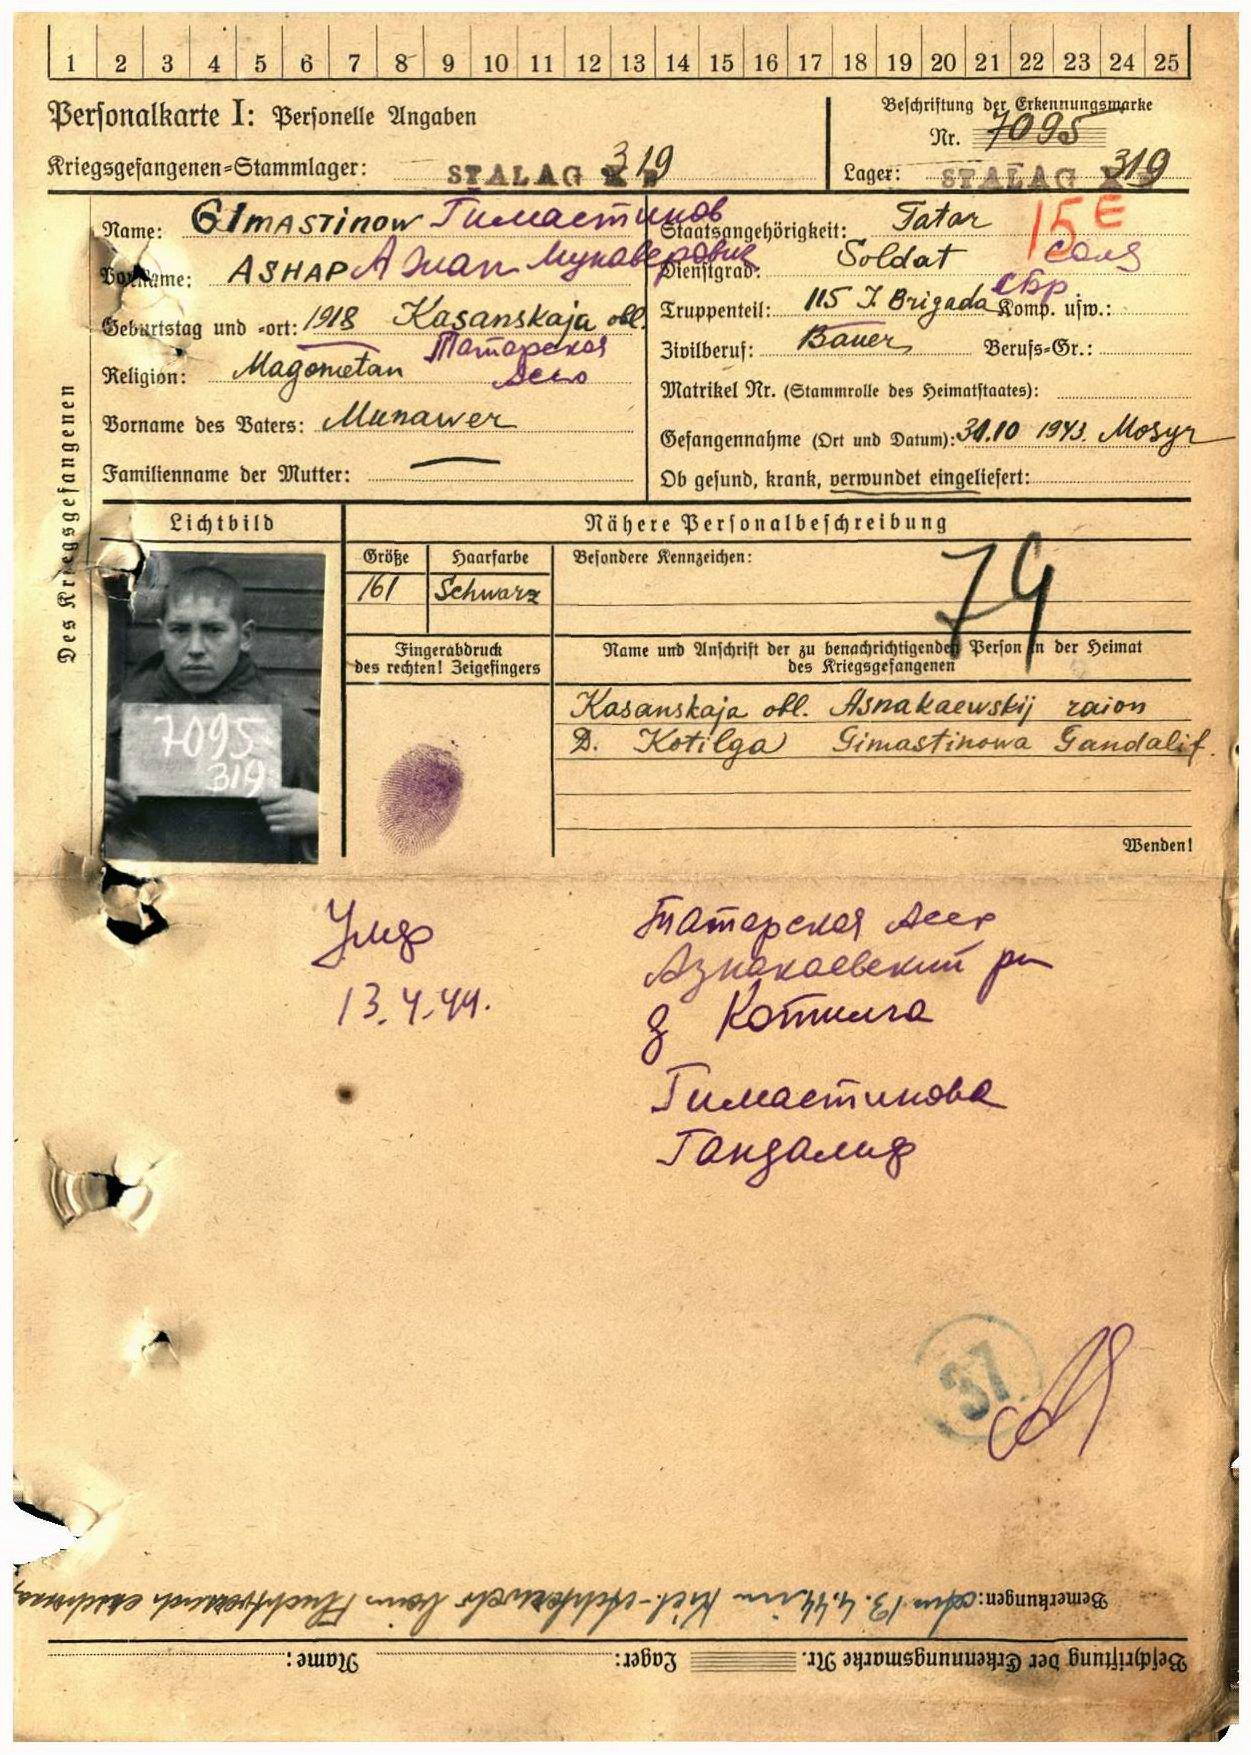 1 2 3 4 5 6 7 8 9 10 11 12 13 14 15 16 17 18 19 20 21 22 23 24 25
Personalkarte I: Personelle Angaben
Kriegsgefangenen-Stammlager: STALAG X 319
Beschriftung der Erkennungsmarke
Nr. 7095
Lager: STALAG X 319
Des Kriegsgefangenen
Name: GImastinow Гимастинов
Vorname: ASHAP Ажап Мунаверович
Geburtstag und -ort: 1918 Kasanskaja obl.
Татарская
Religion: Magometan Ассо
Vorname des Vaters: Munawer
Familienname der Mutter: —
Staatsangehörigkeit: Tatar 15 E
Dienstgrad: Soldat солд
Truppenteil: 115 I. Brigada сбр Komp. usw.:
Zivilberuf: Bauer Berufs-Gr.:
Matrikel Nr. (Stammrolle des Heimatstaates):
Gefangennahme (Ort und Datum): 31.10 1943. Mosyr
Ob gesund, krank, verwundet eingeliefert:
Lichtbild
7095
319
Nähere Personalbeschreibung
Größe Haarfarbe Besondere Kennzeichen:
161 Schwarz
74
Fingerabdruck
des rechten! Zeigefingers
Name und Anschrift der zu benachrichtigenden Person in der Heimat
des Kriegsgefangenen
Kasanskaja obl. Asnakaewskij raion
D. Kotilga Gimastinowa Gandalif.
Wenden!
Умер
13.4.44.
Татарская Асср
Азнакаевский рн
д Котилга
Гимастинова
Гандалиф
37
Bemerkungen: am 13.4.44 in Kiel- beim Fluchtversuch erschossen
Beschriftung der Erkennungsmarke Nr. Lager: Name: